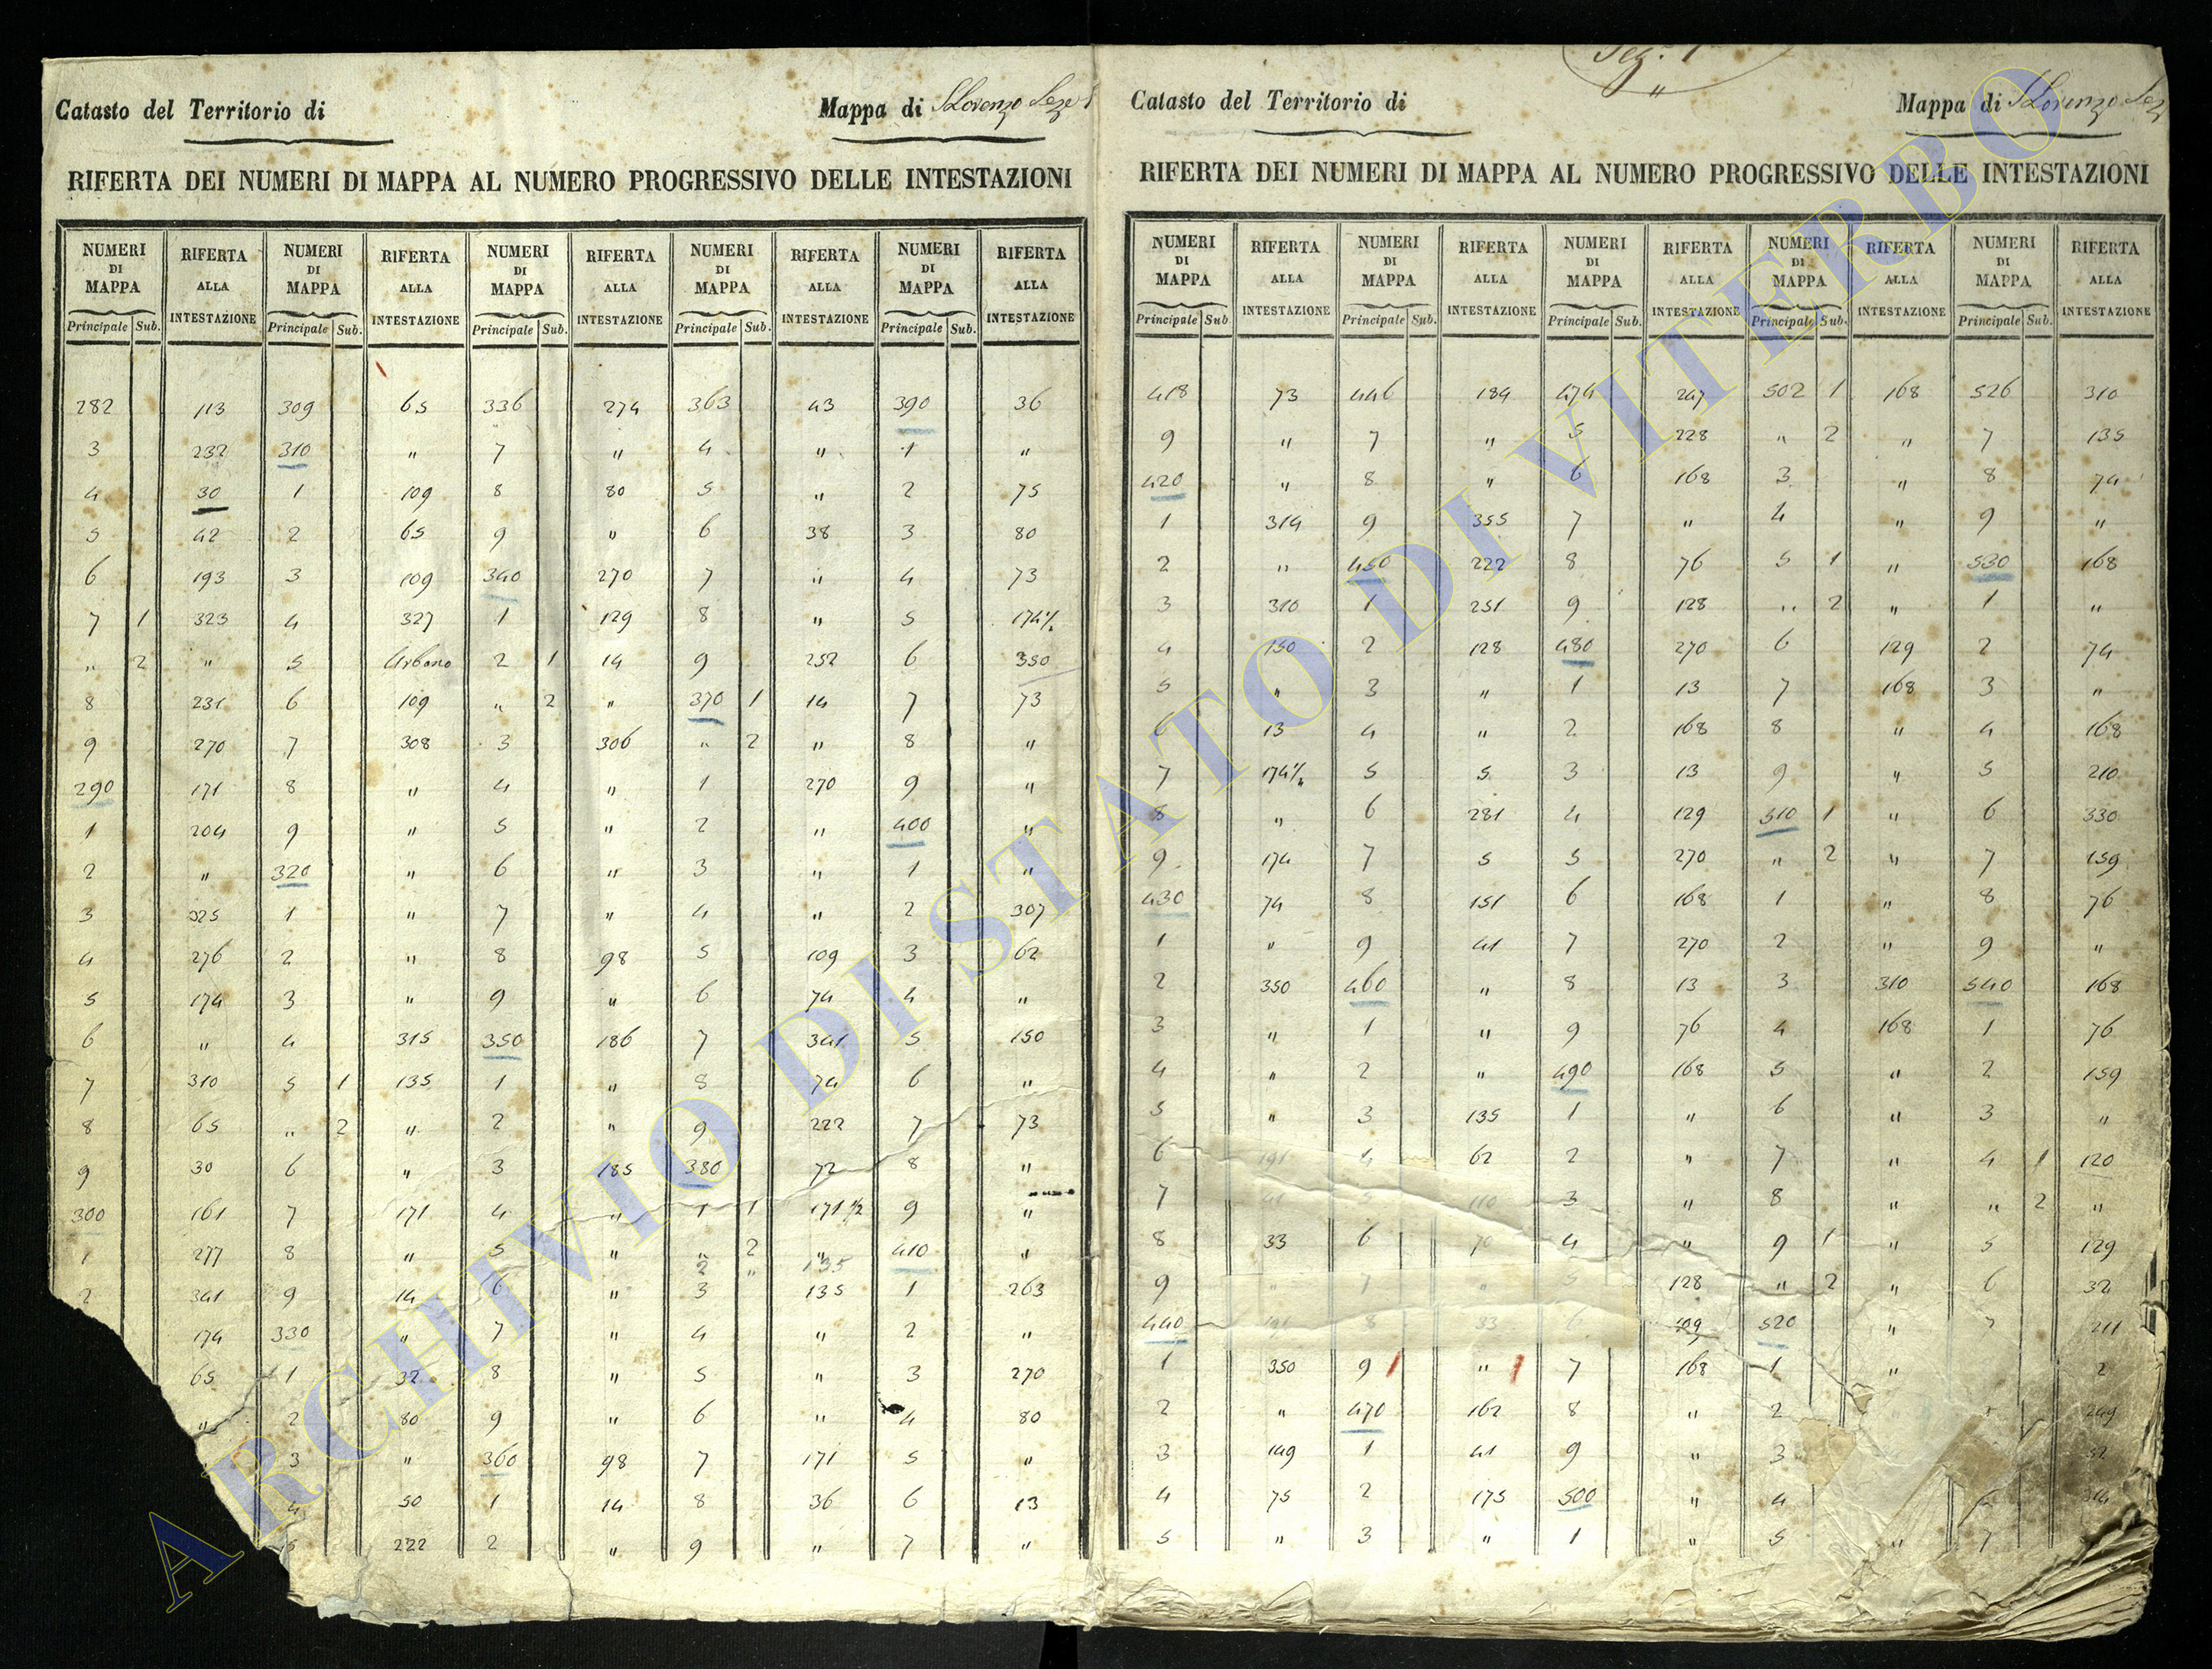 Catasto del Territorio di Mappa di S Lorenzo Sez
RIFERTA DEI NUMERI DI MAPPA AL NUMERO PROGRESSIVO DELLE INTESTAZIONI
NUMERI DI MAPPA RIFERTA ALLA INTESTAZIONE NUMERI DI MAPPA RIFERTA ALLA INTESTAZIONE NUMERI DI MAPPA RIFERTA ALLA INTESTAZIONE NUMERI DI MAPPA RIFERTA ALLA INTESTAZIONE NUMERI DI MAPPA RIFERTA ALLA INTESTAZIONE
Principale Sub. Principale Sub. Principale Sub. Principale Sub. Principale Sub.
282 113 309 65 336 274 363 43 390 36
3 232 310 " 7 " 4 " 1 "
4 30 1 109 8 80 5 " 2 75
5 42 2 65 9 " 6 38 3 80
6 193 3 109 340 270 7 " 4 73
7 1 323 4 327 1 129 8 " 5 174½
" 2 " 5 Urbano 2 1 14 9 252 6 350
8 231 6 109 " 2 " 370 1 14 7 73
9 270 7 308 3 306 " 2 " 8 "
290 171 8 " 4 " 1 270 9 "
1 204 9 " 5 " 2 " 400 "
2 " 320 " 6 " 3 " 1 "
3 325 1 " 7 " 4 " 2 307
4 276 2 " 8 98 5 109 3 62
5 174 3 " 9 " 6 74 4 "
6 " 4 315 350 186 7 341 5 150
7 310 5 1 135 1 " 8 74 6 "
8 65 " 2 " 2 " 9 222 7 73
9 30 6 " 3 185 380 72 8 "
300 161 7 171 4 " 1 1 171 1/2 9 "
1 277 8 " 5 " " 2 " 410 "
2 " 135
2 341 9 14 6 " 3 135 1 263
174 330 " 7 " 4 " 2 "
65 1 32 8 " 5 " 3 270
" 2 80 9 " 6 " 4 80
3 " 360 98 7 171 5 "
4 50 1 14 8 36 6 13
5 222 2 " 9 " 7 "
Catasto del Territorio di Mappa di S Lorenzo Sez
RIFERTA DEI NUMERI DI MAPPA AL NUMERO PROGRESSIVO DELLE INTESTAZIONI
NUMERI DI MAPPA RIFERTA ALLA INTESTAZIONE NUMERI DI MAPPA RIFERTA ALLA INTESTAZIONE NUMERI DI MAPPA RIFERTA ALLA INTESTAZIONE NUMERI DI MAPPA RIFERTA ALLA INTESTAZIONE NUMERI DI MAPPA RIFERTA ALLA INTESTAZIONE
Principale Sub. Principale Sub. Principale Sub. Principale Sub. Principale Sub.
418 73 446 184 474 247 502 1 168 526 310
9 " 7 " 5 228 " 2 " 7 135
420 " 8 " 6 168 3 " 8 74
1 314 9 355 7 " 4 " 9 "
2 " 450 222 8 76 5 1 " 530 168
3 310 1 251 9 128 " 2 " 1 "
4 150 2 128 480 270 6 129 2 74
5 " 3 " 1 13 7 168 3 "
6 13 4 " 2 168 8 " 4 168
7 174½ 5 5 3 13 9 " 5 210
8 " 6 281 4 129 510 1 " 6 330
9 174 7 5 5 270 " 2 " 7 159
430 74 8 151 6 168 1 " 8 76
1 " 9 41 7 270 2 " 9 "
2 350 460 " 8 13 3 310 540 168
3 " 1 " 9 76 4 168 1 76
4 " 2 " 490 168 5 " 2 159
5 " 3 135 1 " 6 " 3 "
6 191 4 62 2 " 7 " 4 1 120
7 41 5 110 3 " 8 " " 2 "
8 33 6 70 4 " 9 1 " 5 129
9 " 7 " 5 128 " 2 " 6 32
440 191 8 33 6 109 520 " 7 211
1 350 9 " 7 168 1 " 2
2 " 470 162 8 " 2 249
3 149 1 41 9 " 3 52
4 75 2 175 500 " 4
5 " 3 " 1 " 5 " 7
ARCHIVIO DI STATO DI VITERBO